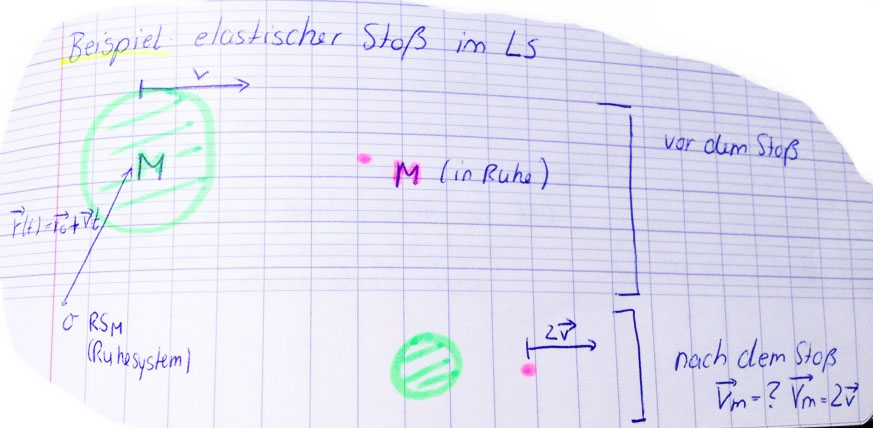 Beispiel: elastischer Stoß im LS
v
M
M (in Ruhe)
vor dem Stoß
r⃗(t)=r⃗₀+v⃗t
O RSM
(Ruhesystem)
2v⃗
nach dem Stoß
v⃗m=? v⃗m=2v⃗